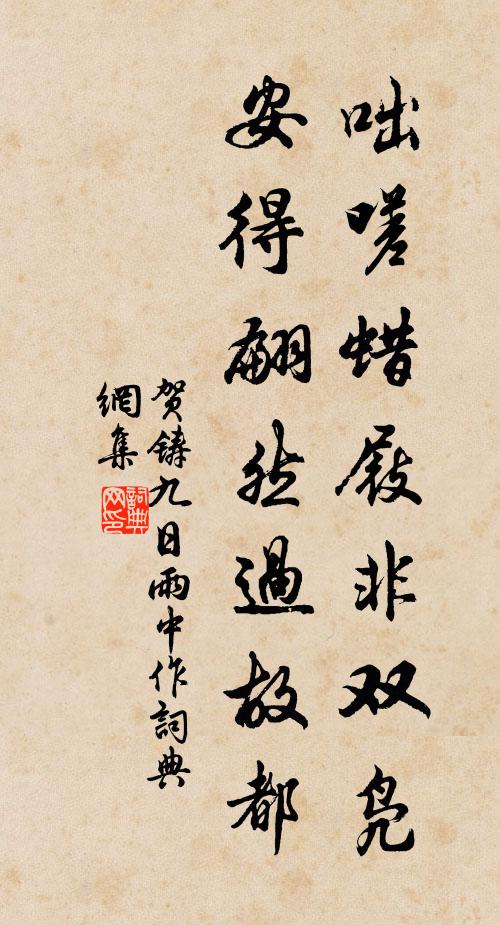 咄嗟蜡屐非双凫
安得翩然過故都
贺鑄九日雨中作詞典
網集
詞典
网印